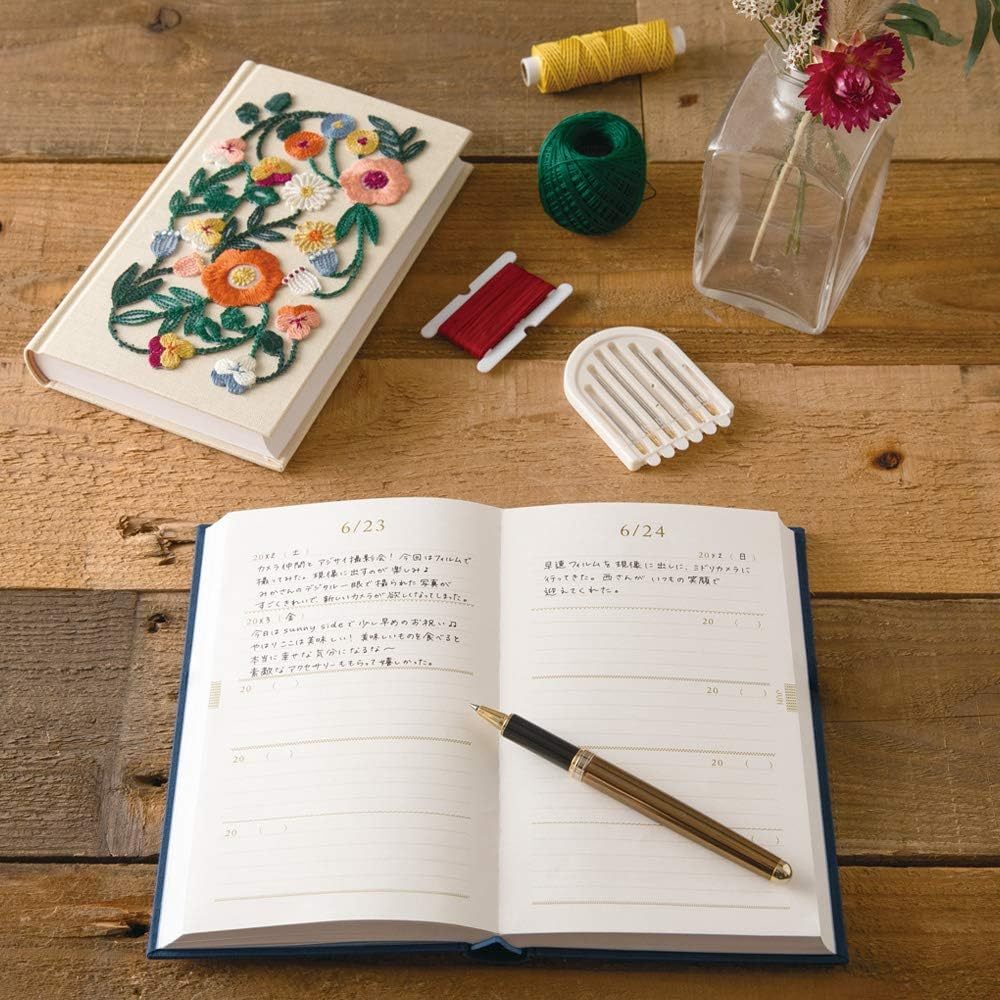 6/23
20X2 (土)
カメラ仲間とアジサイ撮影会! 今回はフィルムで
撮ってみた。現像に出すのが楽しみ♪
みかさんのデジタル一眼で撮られた写真が
すごくきれいで、新しいカメラが欲しくなってしまった。
20X3 (金)
今日はsunny sideで少し早めのお祝い♫
やはりここは美味しい! 美味しいものを食べると
本当に幸せな気分になるな〜
素敵なアクセサリーももらって嬉しかった。
20 ( )
20 ( )
20 ( )
6/24
20X2 (日)
早速フィルムを現像に出しに、ミドリカメラに
行ってきた。西さんがいつもの笑顔で
迎えてくれた。
20 ( )
20 ( )
JUN
20 ( )
( )